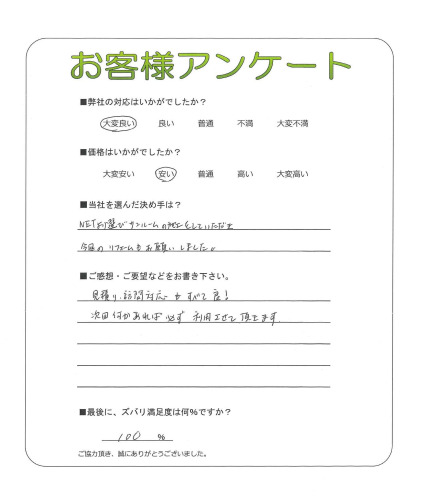 お客様アンケート
■弊社の対応はいかがでしたか？
大変良い 良い 普通 不満 大変不満
■価格はいかがでしたか？
大変安い 安い 普通 高い 大変高い
■当社を選んだ決め手は？
NETで選びサンルームの施工をしていただき
今回のリフォームもお願いしました。
■ご感想・ご要望などをお書き下さい。
見積り、訪問対応 すべて良！
次回何かあれば必ず利用させて頂きます。
■最後に、ズバリ満足度は何%ですか？
100 %
ご協力頂き、誠にありがとうございました。